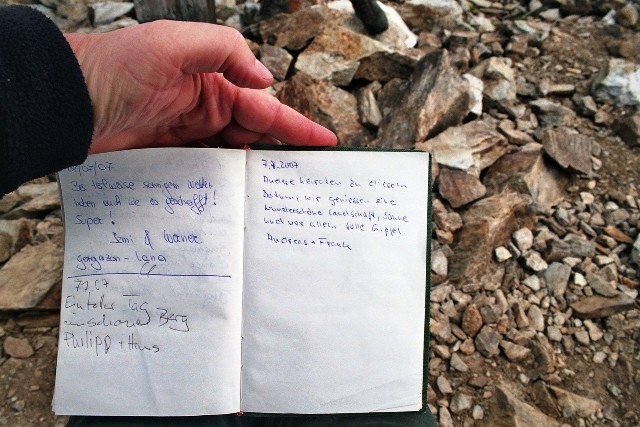 07/07/07
Bei teilweise sonnigem Wetter
haben auch wir es geschafft!
Super!
& Werner
gargazon - Lana
7.7.07
Ein toller Tag
ein schöner Berg
Philipp + Hans
7.7.2007
Andere heiraten zu diesem
Datum, wir geniessen eine
wunderschöne Landschaft, Sonne
und vor allem tolle Gipfel
Andreas + Frank